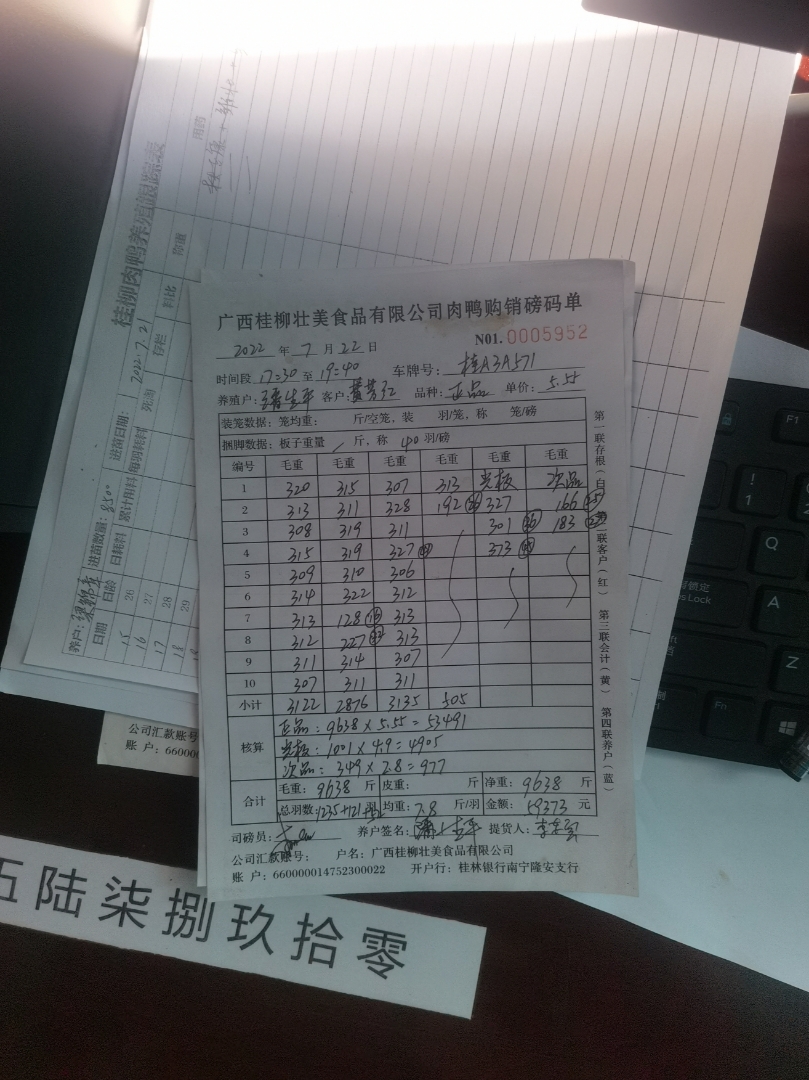 用药
桂柳肉鸭养殖跟踪表
称重
进苗日期: 2022.7.21
存栏 料比
死淘
进苗数量: 850
日耗料 累计用料 每羽耗料
养户:
日期 日龄
15 26
16 27
17 28
18 29
广西桂柳壮美食品有限公司肉鸭购销磅码单
NO1. 0005952
2022 年 7 月 22 日
时间段 17:30 至 19:40 车牌号: 桂A3A571
养殖户: 客户: 品种: 正品 单价: 5.55
装笼数据: 笼均重: 斤/空笼, 装 羽/笼, 称 笼/磅
捆脚数据: 板子重量 / 斤, 称 40 羽/磅
编号 毛重 毛重 毛重 毛重 毛重 毛重
1 320 315 307 313 光板 次品
2 313 311 328 192 327 166
3 308 319 311 301 183
4 315 319 327 373
5 309 310 306
6 314 322 312
7 313 128 313
8 312 227 313
9 311 314 307
10 307 311 311
小计 3122 2876 3135 505
核算
正品: 9638 × 5.55 = 53491
光板: 1001 × 4.9 = 4905
次品: 349 × 2.8 = 977
合计 毛重: 9638 斤 皮重: 斤 净重: 9638 斤
总羽数: 1235+121 羽 均重: 7.8 斤/羽 金额: 59373 元
司磅员: 养户签名: 提货人:
公司汇款账号: 户名: 广西桂柳壮美食品有限公司
账 户: 660000014752300022 开户行: 桂林银行南宁隆安支行
第一联存根(白)第二联客户(红) 第三联会计(黄) 第四联养户(蓝)
公司汇款账号
账 户: 66000
伍陆柒捌玖拾零
!
1
Q
A
Z